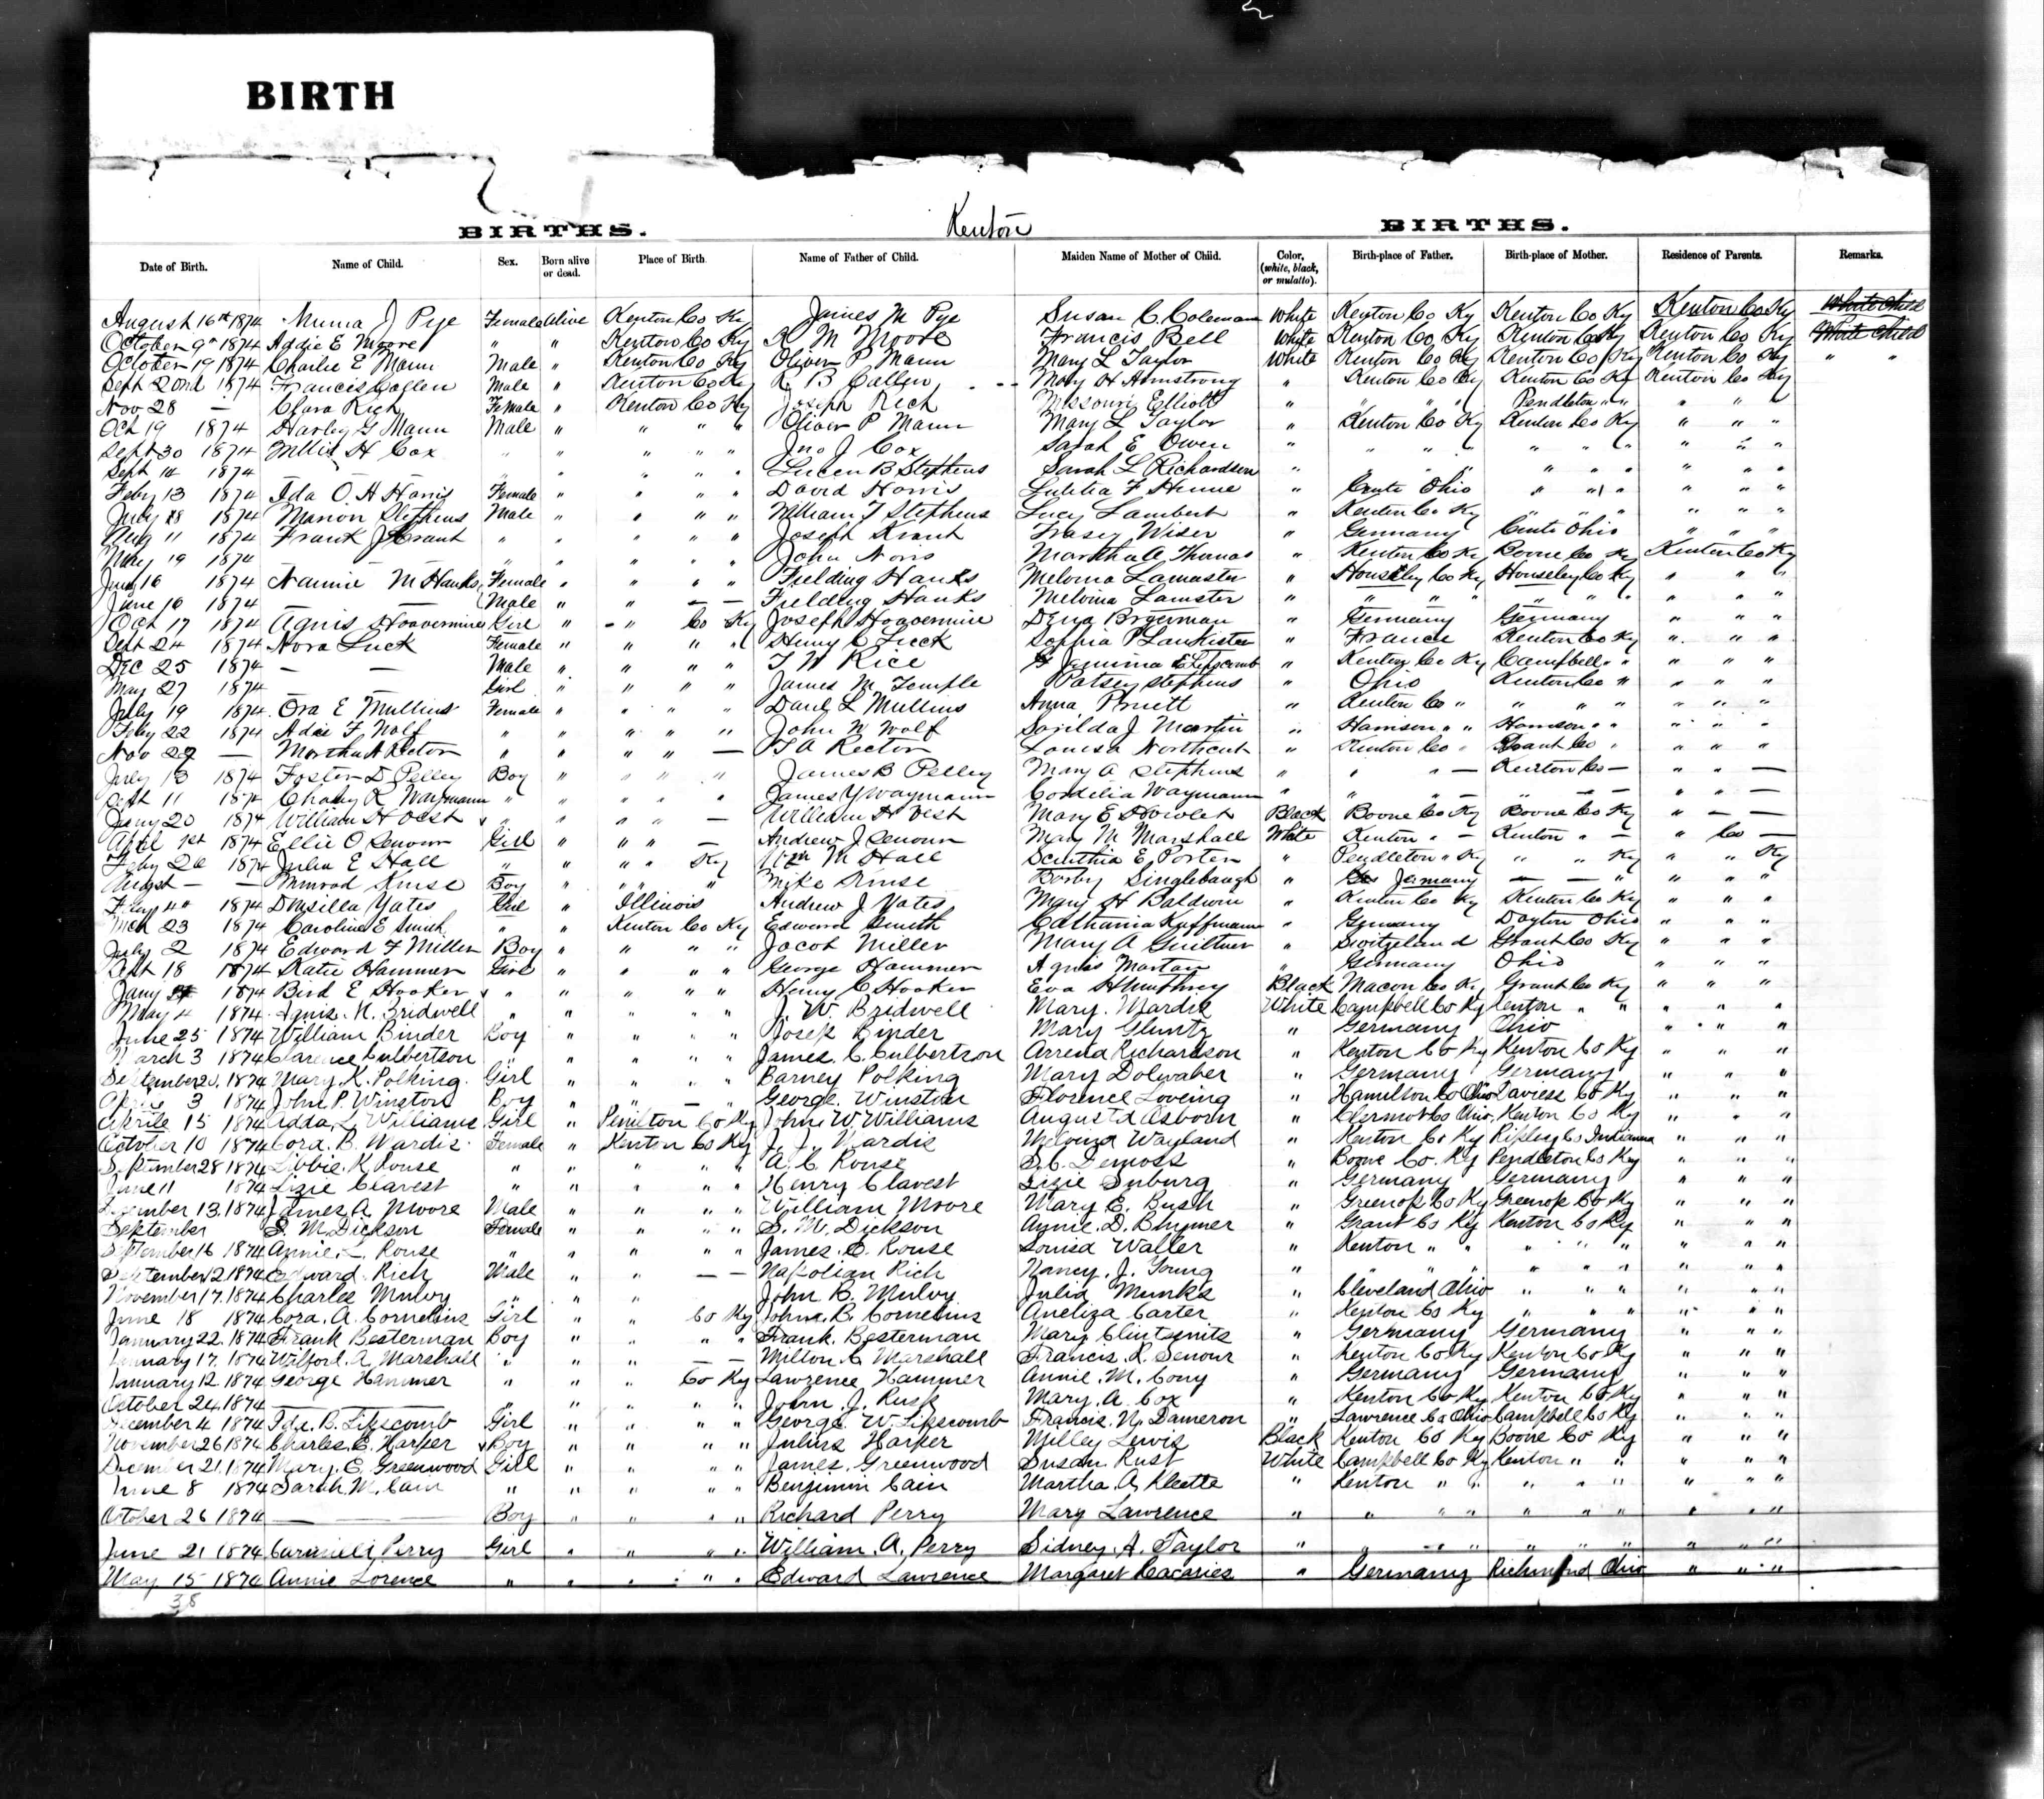 BIRTH
Kenton
BIRTHS. BIRTHS.
Date of Birth. Name of Child. Sex. Born alive or dead. Place of Birth. Name of Father of Child. Maiden Name of Mother of Child. Color, (white, black, or mulatto). Birth-place of Father. Birth-place of Mother. Residence of Parents. Remarks.
August 16th 1874 J Pye Female Alive Kenton Co Ky James M Pye Susan C. Coleman White Kenton Co Ky Kenton Co Ky Kenton Co Ky White Child
October 9th 1874 Addie E Moore " " Kenton Co Ky R M Moore Francis Bell White Kenton Co Ky Kenton Co Ky Kenton Co Ky White Child
October 19 1874 Charlie E Mann Male " Kenton Co Ky Oliver P Mann Mary L Taylor White Kenton Co Ky Kenton Co Ky Kenton Co Ky " "
Sept 22nd 1874 Francis Callen Male " Kenton Co Ky R B Callen Mary H Armstrong " Kenton Co Ky Kenton Co Ky Kenton Co Ky
Nov 28 — Clara Rich Female " Kenton Co Ky Joseph Rich Missouri Elliott " " " " Pendleton " " " " "
Oct 19 1874 Harley G Mann Male " " " " Oliver P Mann Mary L Taylor " Kenton Co Ky Kenton Co Ky " " "
Sept 30 1874 Willis H Cox " " " " " Jno J Cox Sarah E Owen " " " " " " " " " "
Sept 14 1874 " " " " Stephens Sarah L Richardson " " " " " " " " " "
Feby 13 1874 Ida O. H Harris Female " " " " David Harris F " Ohio " " " " " "
July 18 1874 Marion Stephens Male " " " " William T Stephens Lucy Lambert " Kenton Co Ky " " " " " "
Aug 11 1874 Frank J Krant " " " " " Joseph Krant Wiser " Germany Ohio " " "
May 19 1874 — " " " " " John Martha A Thomas " Kenton Co Ky Boone Co Ky Kenton Co Ky
16 1874 Nannie M Hanks Female " " " " Fielding Hanks Melvina Lamaster " Houseley Co Ky Houseley Co Ky " " "
June 16 1874 — Male " " — — Fielding Hanks Melvina Lamster " " " " " " " " " "
Oct 17 1874 Agnis Hoovermire Girl " " Co Ky Joseph Hoovermire " Germany Germany " " "
Sept 24 1874 Nora Luck Female " " " " Henry C Luck Sophia P " France Kenton Co Ky " " "
Dec 25 1874 — — Male " " " " T W Rice Jemima E Lipscomb " Kenton Co Ky Campbell " " " " "
May 27 1874 — Girl " " " " James M Temple Patsey Stephens " Ohio Kenton Co " " " "
July 19 1874 Ora E Mullins Female " " " " Danl L Mullins Anna Pruett " Kenton Co " " " " " " "
Feby 22 1874 Adie F Wolf " " " " " John W Wolf Sarilda J Martin " Harrison " " Harrison " " " " "
Nov 29 — Martha A Rector " " " " — T A Rector Louisa Northcut " Kenton Co " Grant Co " " " "
July 13 1874 Foster D Pelley Boy " " " " James B Pelley Mary A Stephens " " " — Kenton Co — " " —
Sept 11 1874 R Waymann " " " " " James Y Waymann Cordelia Waymann " " " — " — — " " —
Jany 20 1874 William H Vest v " " " " — William H Vest Mary E Howlet Black Boone Co Ky Boone Co Ky " — —
April 1st 1874 Ellie O Senour Girl " " " — Andrew J Senour Mary M Marshall White Kenton " — Kenton " — " Co —
Feby 26 1874 Julia E Hall " " " " Ky Wm M Hall E Porter " Pendleton " Ky " " Ky " " Ky
August — — Kruse Boy " " " " Mike Kruse Singlebaugh " Germany — — " " " "
1874 Drusilla Yates Girl " Illinois Andrew J Yates Mary H Baldwin " Kenton Co Ky Kenton Co Ky " " "
Mch 23 1874 Caroline E Smith " " Kenton Co Ky Edward Smith Catharina Kuffmann " Germany Dayton Ohio " " "
July 2 1874 Edward F Miller Boy " " " " Jacob Miller Mary A Guiltner " Switzeland Grant Co Ky " " "
Sept 18 1874 Katie Hammer Girl " " " " George Hammer Agnis " Germany Ohio " " "
Jany 1874 Bird E Hooker v " " " " " Henry C Hooker Eva Humphrey Black Macon Co Ky Grant Co Ky " " "
May 4 1874 Agnis N. Bridwell " " " " " J. W. Bridwell Mary Wardie White Campbell Co Ky Kenton " " " " "
June 25 1874 William Binder Boy " " " " Josep Binder Mary Gluntz " Germany Ohio " " "
March 3 1874 Clarence Culbertson " " " " " James. C. Culbertson Arrena Richardson " Kenton Co Ky Kenton Co Ky " " "
September 20, 1874 Mary. K. Polking. Girl " " " " Barney Polking Mary Dolwaber " Germany Germany " " "
3 1874 John P. Winston Boy " " — " George. Winston Florence Loveing " Hamilton Co Ohio Daviess Co Ky " " "
Aprile 15 1874 Adda L Williams Girl " Penelton Co Ky John. W. Williams Augusta Asborn " Clermot Co Ohio Kenton Co Ky " " "
October 10 1874 Cora. B. Wardis. Female " Kenton Co Ky J. J. Wardis Melvina Wayland " Kenton Co Ky Ripley Co Indianna " " "
September 28 1874 Libbie. K. Rouse " " " " " A. C. Rouse S. C. Demoss " Boone Co. Ky Pendleton Co Ky " " "
June 11 1874 Lizie Clavest " " " " " Henry Clavest Lizie Inburg " Germany Germany " " "
December 13. 1874 James A. Moore Male " " " " William Moore Mary E. Bush " Greenop Co Ky Greenop Co Ky " " "
September S. M. Dickson Female " " " " S. M. Dickson Annie. D. Blugmer " Grant Co Ky Kenton Co Ky " " "
September 16 1874 Annie. L. Rouse " " " " " James. O. Rouse Louisa Waller " Kenton " " " " " " " "
September 12 1874 Edward. Rich Male " " — — Napolian Rich Nancy. J. Young " " " " " " " " " "
November 17. 1874 Charles Mulvy " " " John B. Mulvy Julia Munks " Cleveland Ohio " " " " " "
June 18 1874 Cora. A. Cornelius Girl " " Co Ky John. B. Cornelius Aneliza Carter " Kenton Co Ky " " " " " "
January 22. 1874 Frank Besterman Boy " " " " Frank. Besterman Mary " Germany Germany " " "
January 17. 1874 Wilford. A. Marshall " " " — — Milton C Marshall Francis. R. Senour " Kenton Co Ky Kenton Co Ky " " "
January 12. 1874 George Hammer " " " Co Ky Lawrence Hammer Annie. M. Cony " Germany Germany " " "
October 24 1874 — " " " " John. J. Rush Mary. A. Cox " Kenton Co Ky Kenton Co Ky " " "
December 4 1874 Ida. B. Lipscomb Girl " " " " George. W. Lipscomb Francis. N. Dameron " Lawrence Co Ohio Campbell Co Ky " " "
November 26 1874 Charles. E. Harper v Boy " " " " Julius Harper Milley Lewis Black Kenton Co Ky Boone Co Ky " " "
December 21. 1874 Mary. E. Greenwood Girl " " " " James. Greenwood Susan Rust White Campbell Co Ky Kenton " " " " "
June 8 1874 Sarah M. Cain " " " " " Benjimin Cain Martha. A. Kleette " Kenton " " " " " " " "
October 26 1874 — Boy " " " " Richard Perry Mary Lawrence " " " " " " " " " "
June 21 1874 Perry Girl " " " " William. A. Perry Sidney. A. Taylor " " " " " " " " " "
May 15 1874 Annie Lorence " " " " " Edward Lawrence Margaret Cacaries " Germany Richmond Ohio " " "
38